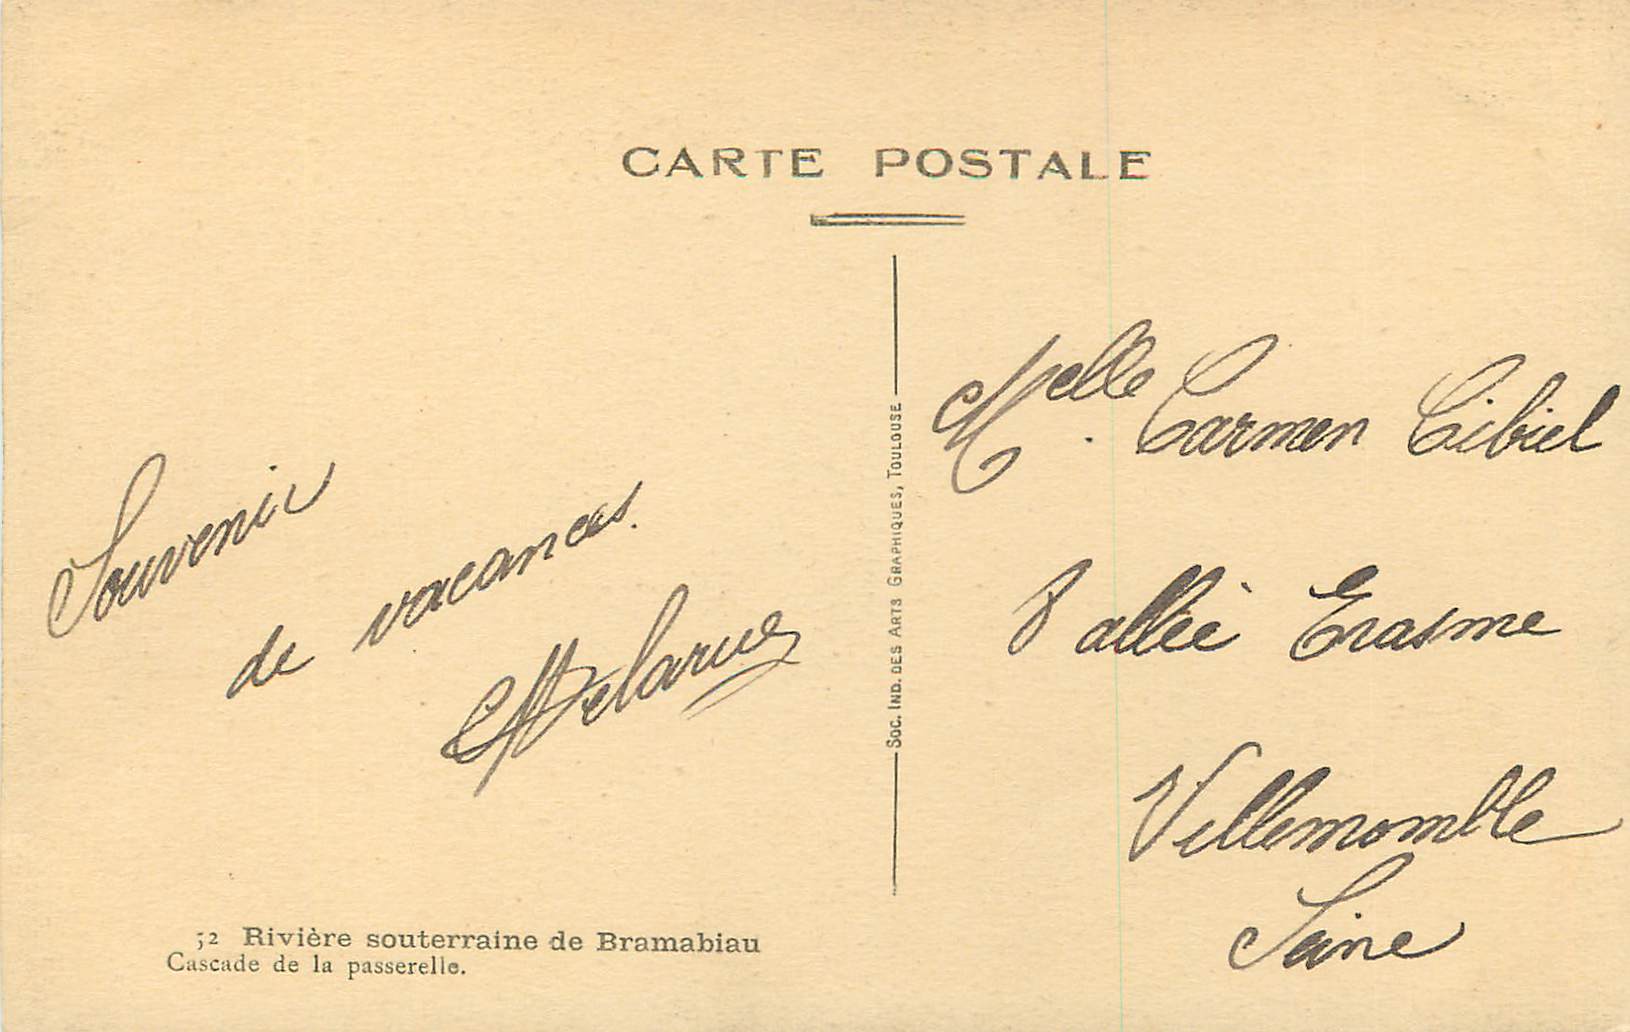 CARTE POSTALE
Souvenir
de vacances.
Delarue
Melle. Carmen Cibiel
8 allée Erasme
Villemomble
Seine
Soc. Ind. des Arts Graphiques, Toulouse
52 Rivière souterraine de Bramabiau
Cascade de la passerelle.